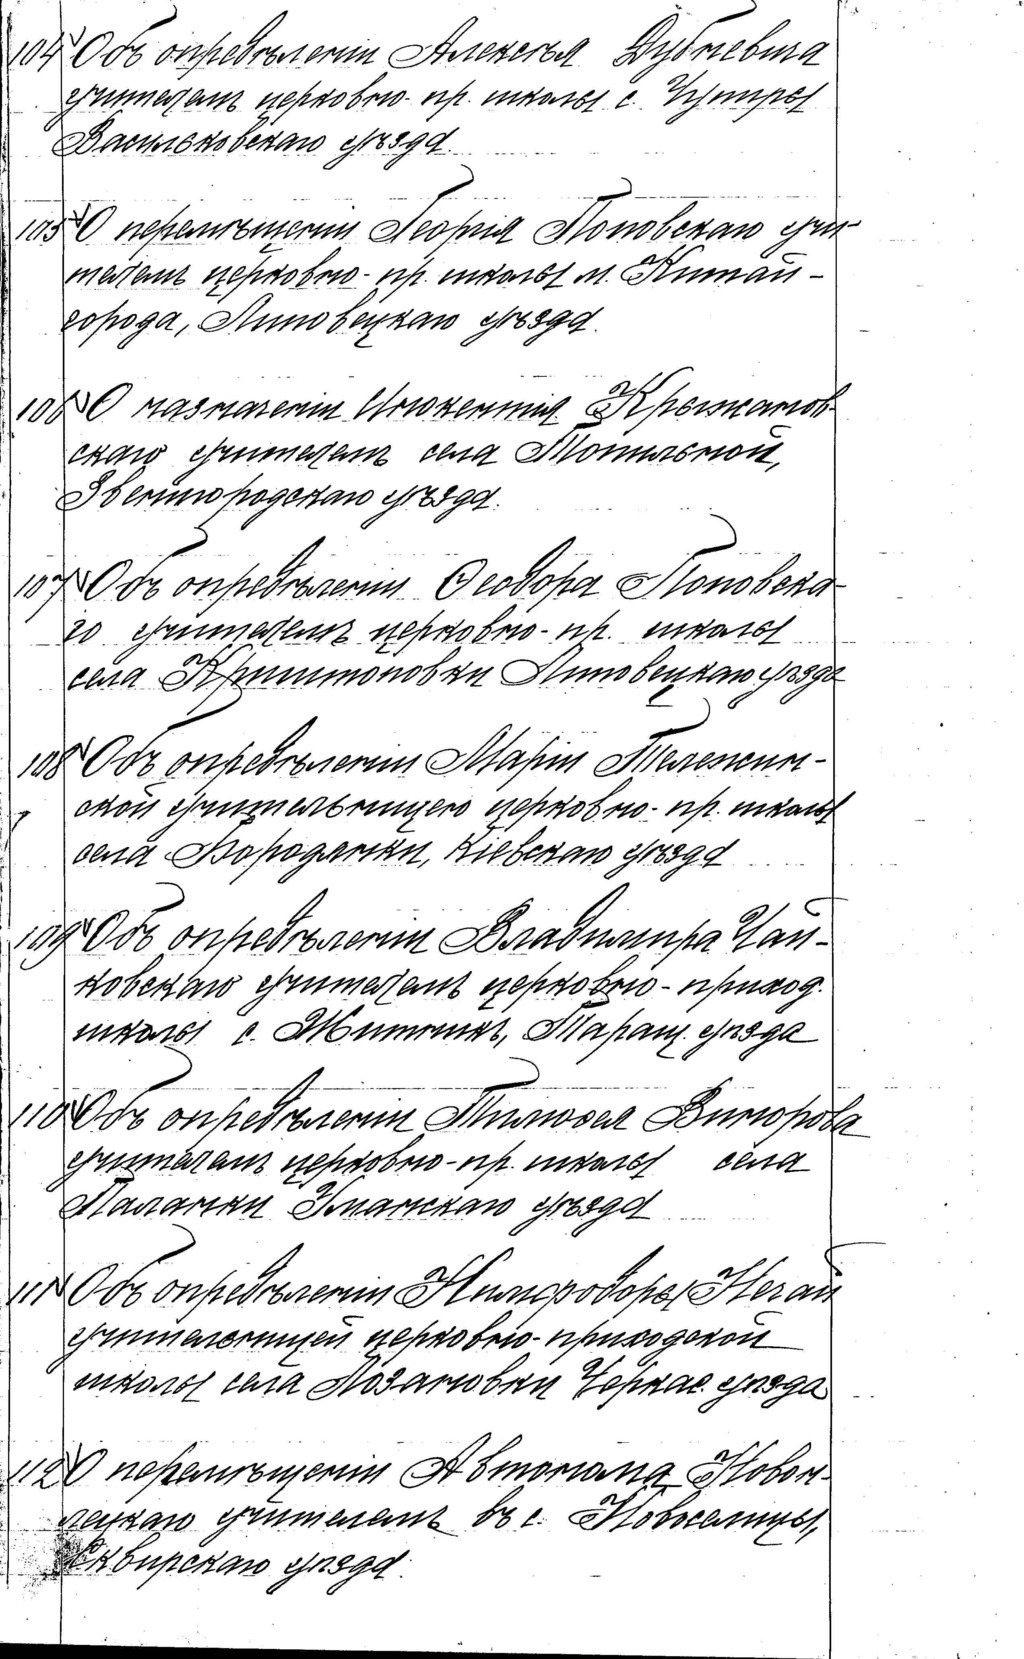 104 Объ опредѣленіи Алексѣя Дубневича
учителемъ церковно-пр. школы с.
Васильковскаго уѣзда.
105 О перемѣщеніи Георгія Поповскаго учи-
телемъ церковно-пр. школы м. Китай-
города, Липовецкаго уѣзда.
106 О назначеніи Инокентія Крыжанов-
скаго учителемъ села Топильной,
Звенигородскаго уѣзда.
107 Объ опредѣленіи Ѳеодора Поповска-
го учителемъ церковно-пр. школы
села Криштоповки Липовецкаго уѣзда
108 Объ опредѣленіи Маріи Тележин-
ской учительницею церковно-пр. школы
села Бородянки, Кіевскаго уѣзда
109 Объ опредѣленіи Владиміра Чай-
ковскаго учителемъ церковно-приход.
школы с. Житники, Таращ. уѣзда
110 Объ опредѣленіи Тимоѳея Винорова
учителемъ церковно-пр. школы села
Паланки Уманскаго уѣзда
111 Объ опредѣленіи Нимфодоры Негай
учительницей церковно-приходской
школы села Лозановки Черкас. уѣзда
112 О перемѣщеніи Автонома Новом-
лецкаго учителемъ въ с. Новоселицы,
Сквирскаго уѣзда.